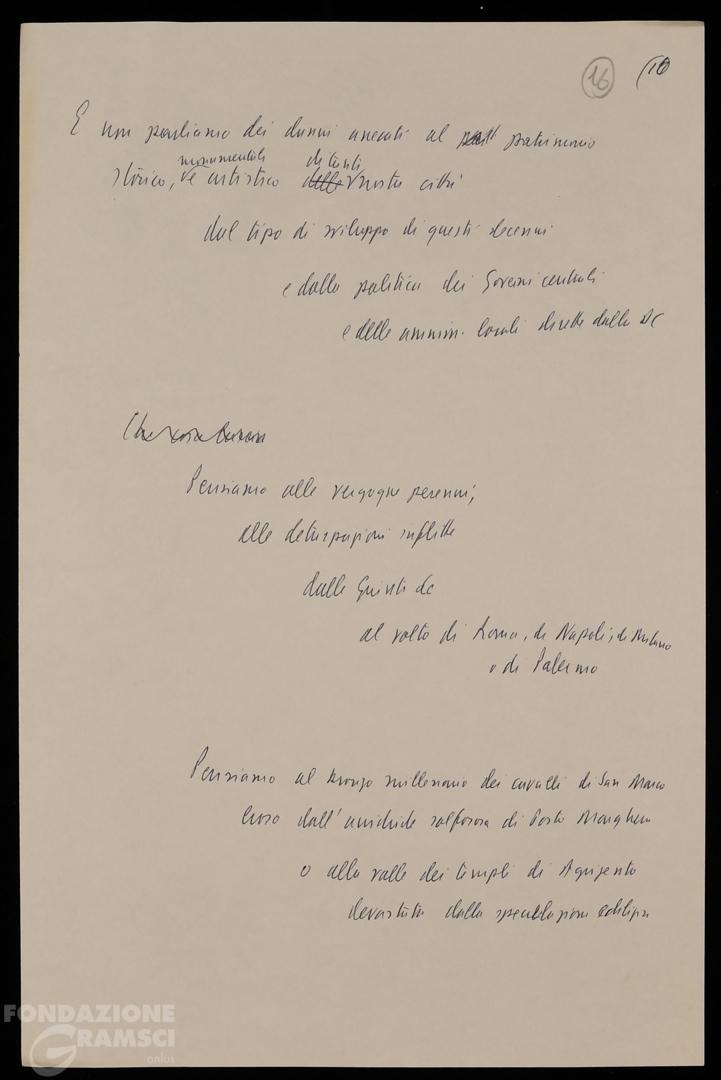 16 16
E non parliamo dei danni arrecati al patrimonio
monumentale di tante
storico, e artistico delle nostre città
dal tipo di sviluppo di questi decenni
e dalla politica dei Governi centrali
e delle ammin. locali dirette dalla DC
Che cosa
Pensiamo alle vergogne perenni,
alle deturpazioni inflitte
dalle Giunte dc
al volto di Roma, di Napoli, di Milano
o di Palermo
Pensiamo al bronzo millenario dei cavalli di San Marco
corroso dall'anidride solforosa di Porto Marghera
o alla valle dei templi di Agrigento
devastata dalla speculazione edilizia
FONDAZIONE
GRAMSCI
onlus